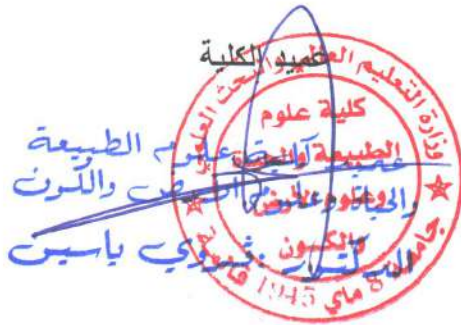 عميد الكلية
وزارة التعليم العالي والبحث العلمي
كلية علوم
الطبيعة والحياة
وعلوم الأرض
والكون
جامعة 8 ماي 1945 قالمة
عميد كلية علوم الطبيعة
والحياة وعلوم الأرض والكون
الدكتور ياسين